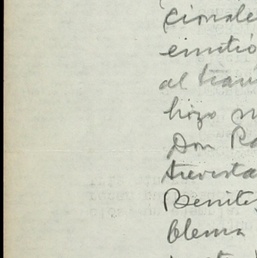 cionale
emitió
al tran
hizo
Don Ra
trevista
Benite
blema